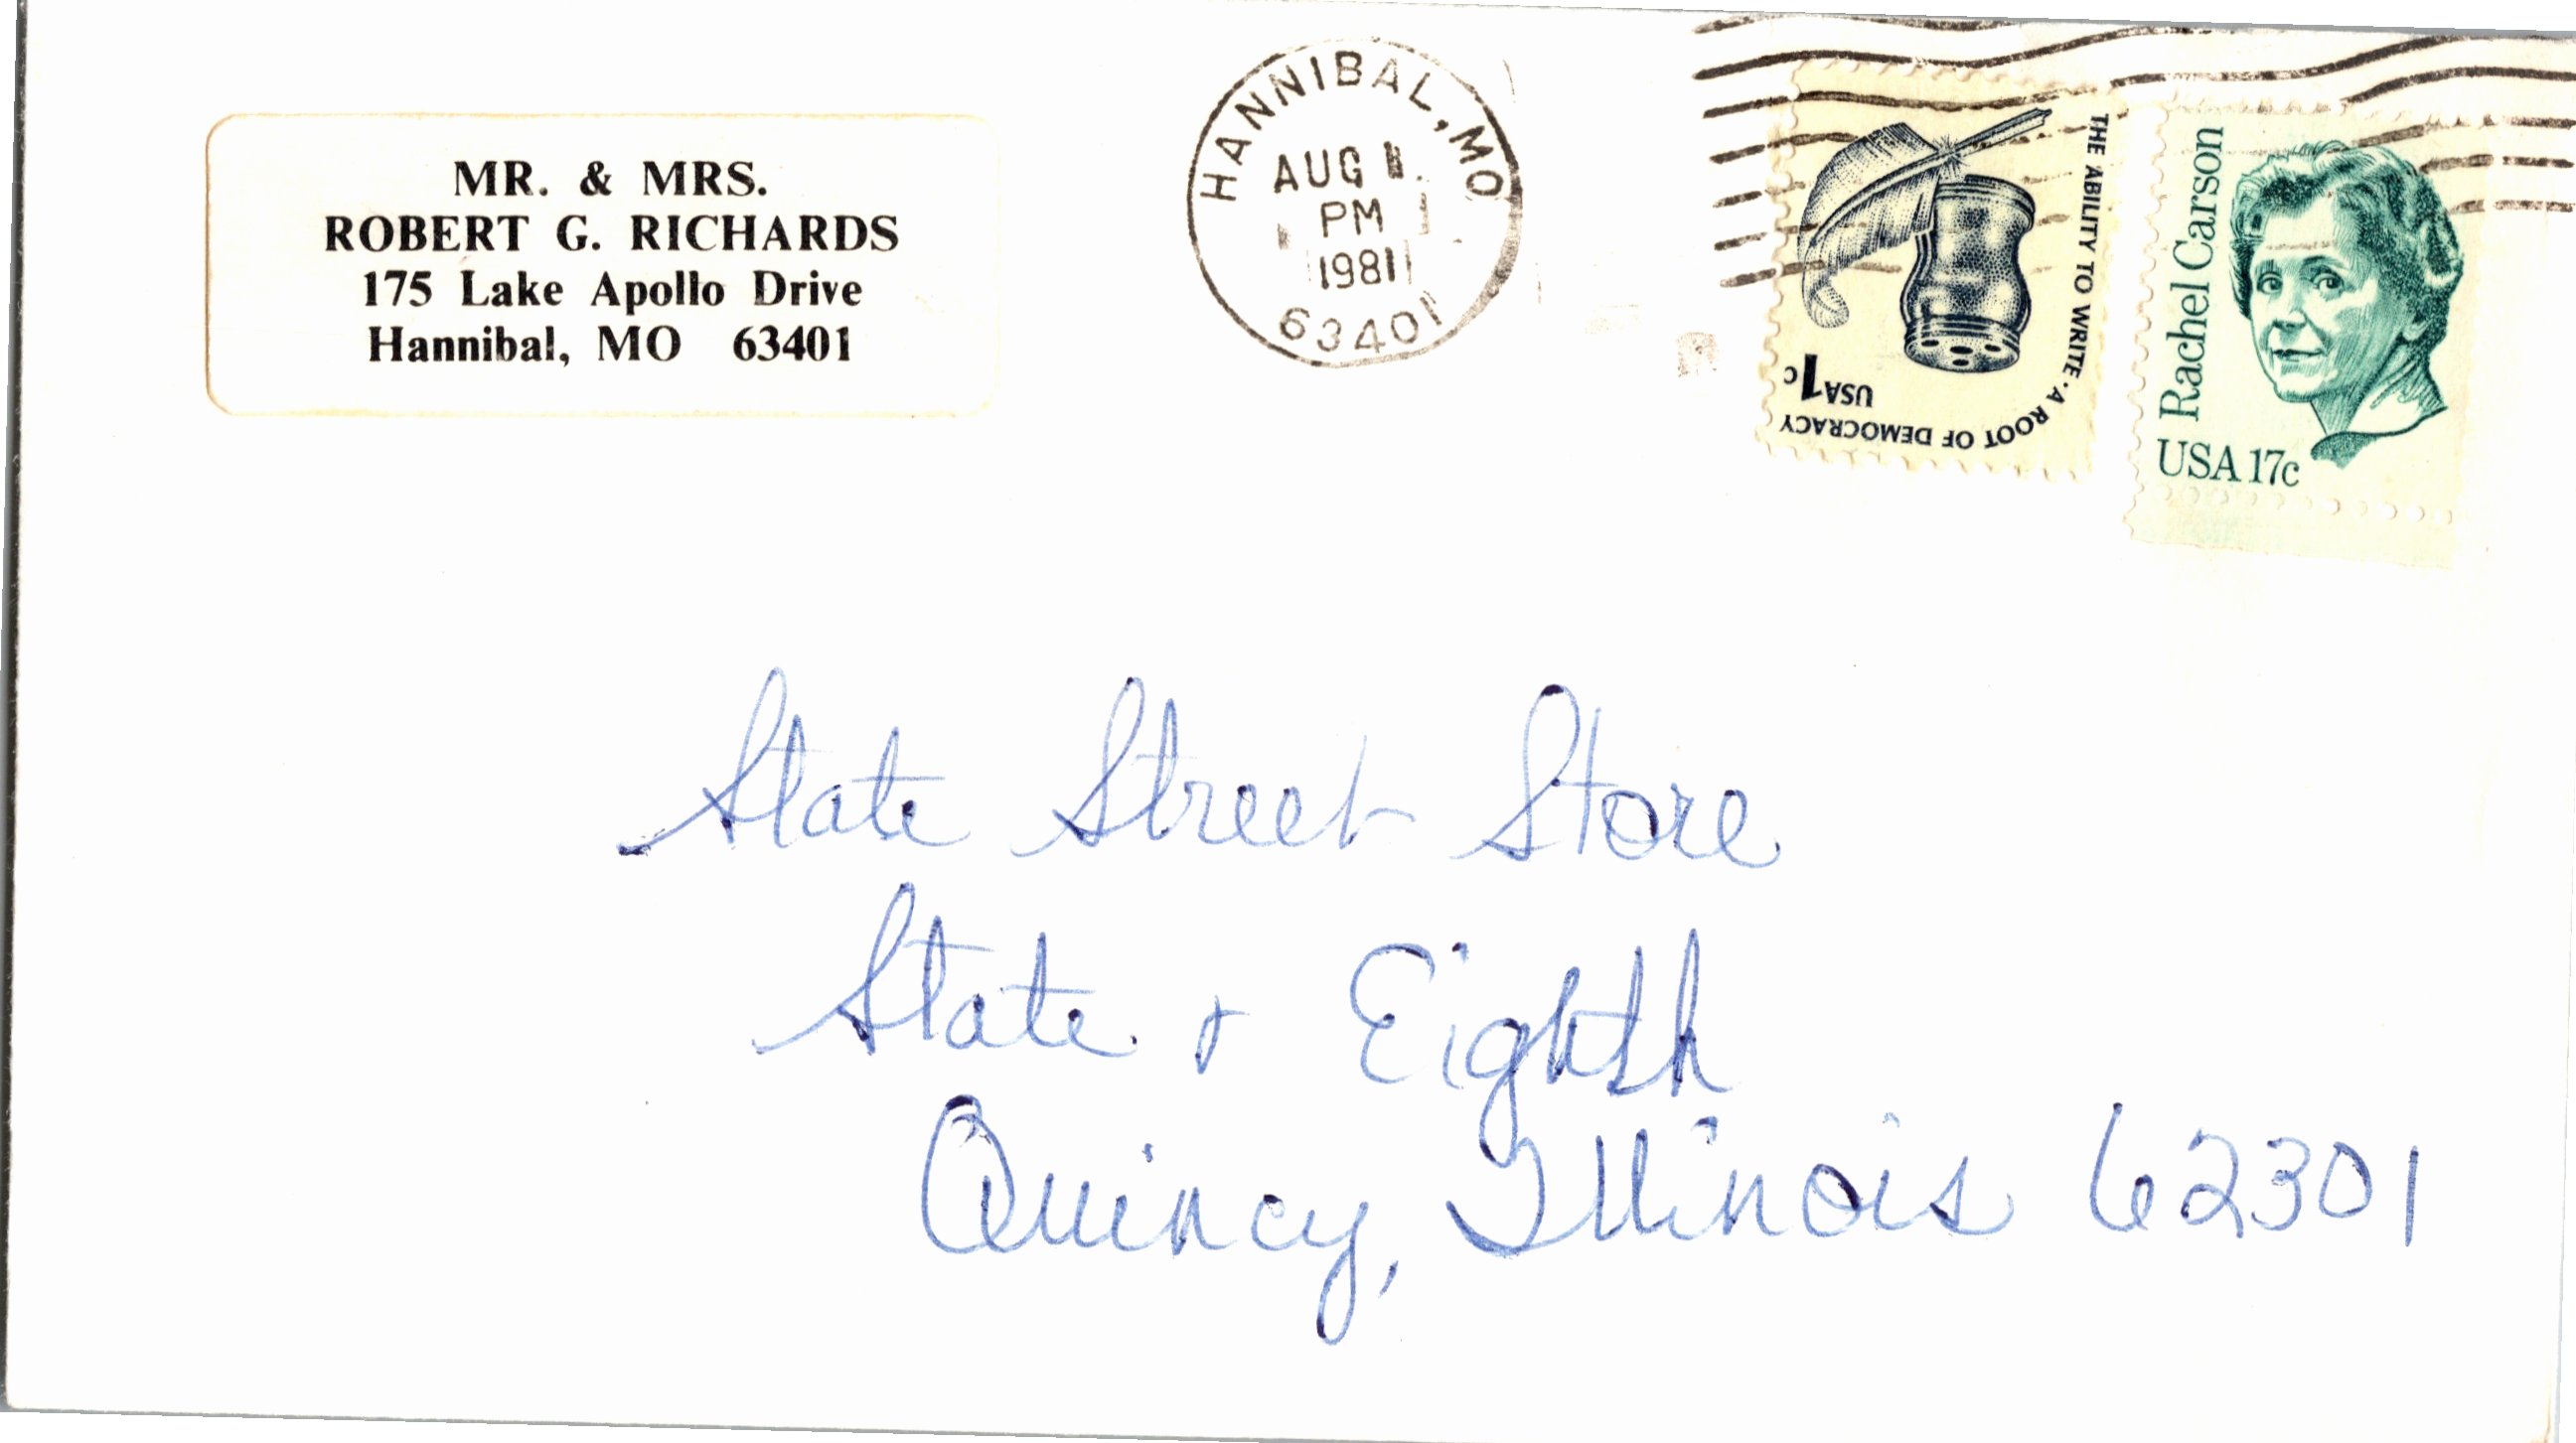 MR. & MRS.
ROBERT G. RICHARDS
175 Lake Apollo Drive
Hannibal, MO 63401
HANNIBAL, MO
AUG
PM
1981
63401
THE ABILITY TO WRITE · A ROOT OF DEMOCRACY
USA 1c
Rachel Carson
USA 17c
State Street Store
State & Eighth
Quincy, Illinois 62301